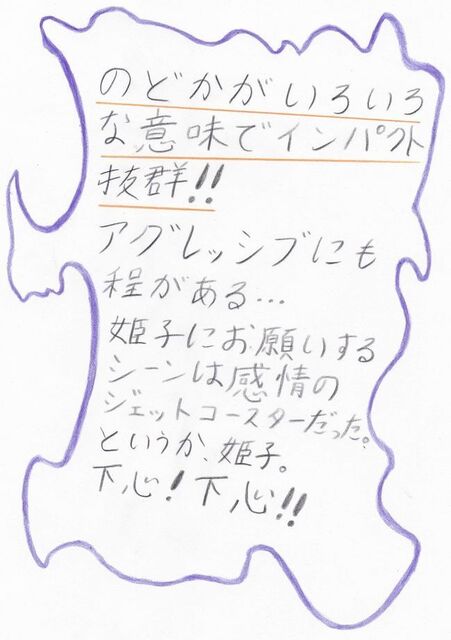 のどかがいろいろ
な意味でインパクト
抜群!!
アグレッシブにも
程がある…
姫子にお願いする
シーンは感情の
ジェットコースターだった。
というか、姫子。
下心!下心!!